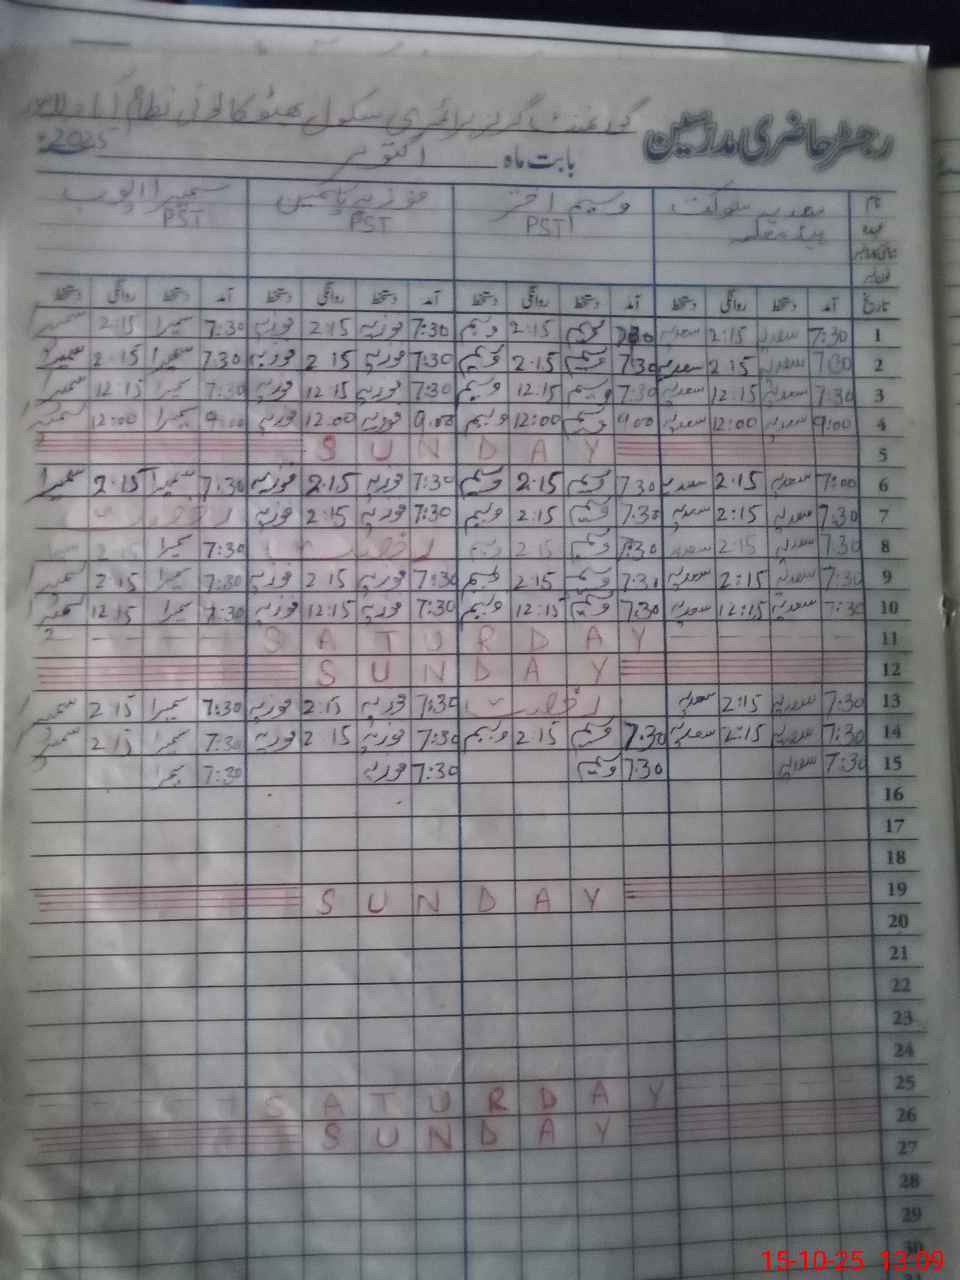 رجسٹر حاضری مدرسین گورنمنٹ گرلز پرائمری سکول بھٹو کالونی نظام آباد
بابت ماہ اکتوبر 2025
نام سعدیہ شوکت وسیم اختر فوزیہ یاسمین سمیرا ایوب
عہدہ ہیڈ معلمہ PST PST PST
تاریخ آمد دستخط روانگی دستخط آمد دستخط روانگی دستخط آمد دستخط روانگی دستخط آمد دستخط روانگی دستخط
1 7:30 سعدیہ 2:15 سعدیہ 7:30 وسیم 2:15 وسیم 7:30 فوزیہ 2:15 فوزیہ 7:30 سمیرا 2:15 سمیرا
2 7:30 سعدیہ 2:15 سعدیہ 7:30 وسیم 2:15 وسیم 7:30 فوزیہ 2:15 فوزیہ 7:30 سمیرا 2:15 سمیرا
3 7:30 سعدیہ 12:15 سعدیہ 7:30 وسیم 12:15 وسیم 7:30 فوزیہ 12:15 فوزیہ 7:30 سمیرا 12:15 سمیرا
4 9:00 سعدیہ 12:00 سعدیہ 9:00 وسیم 12:00 وسیم 9:00 فوزیہ 12:00 فوزیہ 9:00 سمیرا 12:00 سمیرا
5 SUNDAY
6 7:00 سعدیہ 2:15 سعدیہ 7:30 وسیم 2:15 وسیم 7:30 فوزیہ 2:15 فوزیہ 7:30 سمیرا 2:15 سمیرا
7 7:30 سعدیہ 2:15 سعدیہ 7:30 وسیم 2:15 وسیم 7:30 فوزیہ 2:15 فوزیہ رخصت
8 7:30 سعدیہ 2:15 سعدیہ 7:30 وسیم 2:15 وسیم رخصت 7:30 سمیرا 2:15 سمیرا
9 7:30 سعدیہ 2:15 سعدیہ 7:30 وسیم 2:15 وسیم 7:30 فوزیہ 2:15 فوزیہ 7:30 سمیرا 2:15 سمیرا
10 7:30 سعدیہ 12:15 سعدیہ 7:30 وسیم 12:15 وسیم 7:30 فوزیہ 12:15 فوزیہ 7:30 سمیرا 12:15 سمیرا
11 SATURDAY
12 SUNDAY
13 7:30 سعدیہ 2:15 سعدیہ رخصت 7:30 فوزیہ 2:15 فوزیہ 7:30 سمیرا 2:15 سمیرا
14 7:30 سعدیہ 2:15 سعدیہ 7:30 وسیم 2:15 وسیم 7:30 فوزیہ 2:15 فوزیہ 7:30 سمیرا 2:15 سمیرا
15 7:30 سعدیہ 7:30 وسیم 7:30 فوزیہ 7:30 سمیرا
16
17
18
19 SUNDAY
20
21
22
23
24
25 SATURDAY
26 SUNDAY
27
28
29
30
15-10-25 13:09